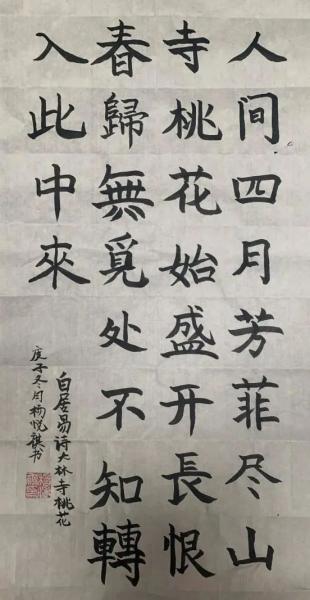 人间四月芳菲尽山
寺桃花始盛开長恨
春歸無覓处不知轉
入此中來
白居易詩大林寺桃花
庚子冬月楊悦騏书